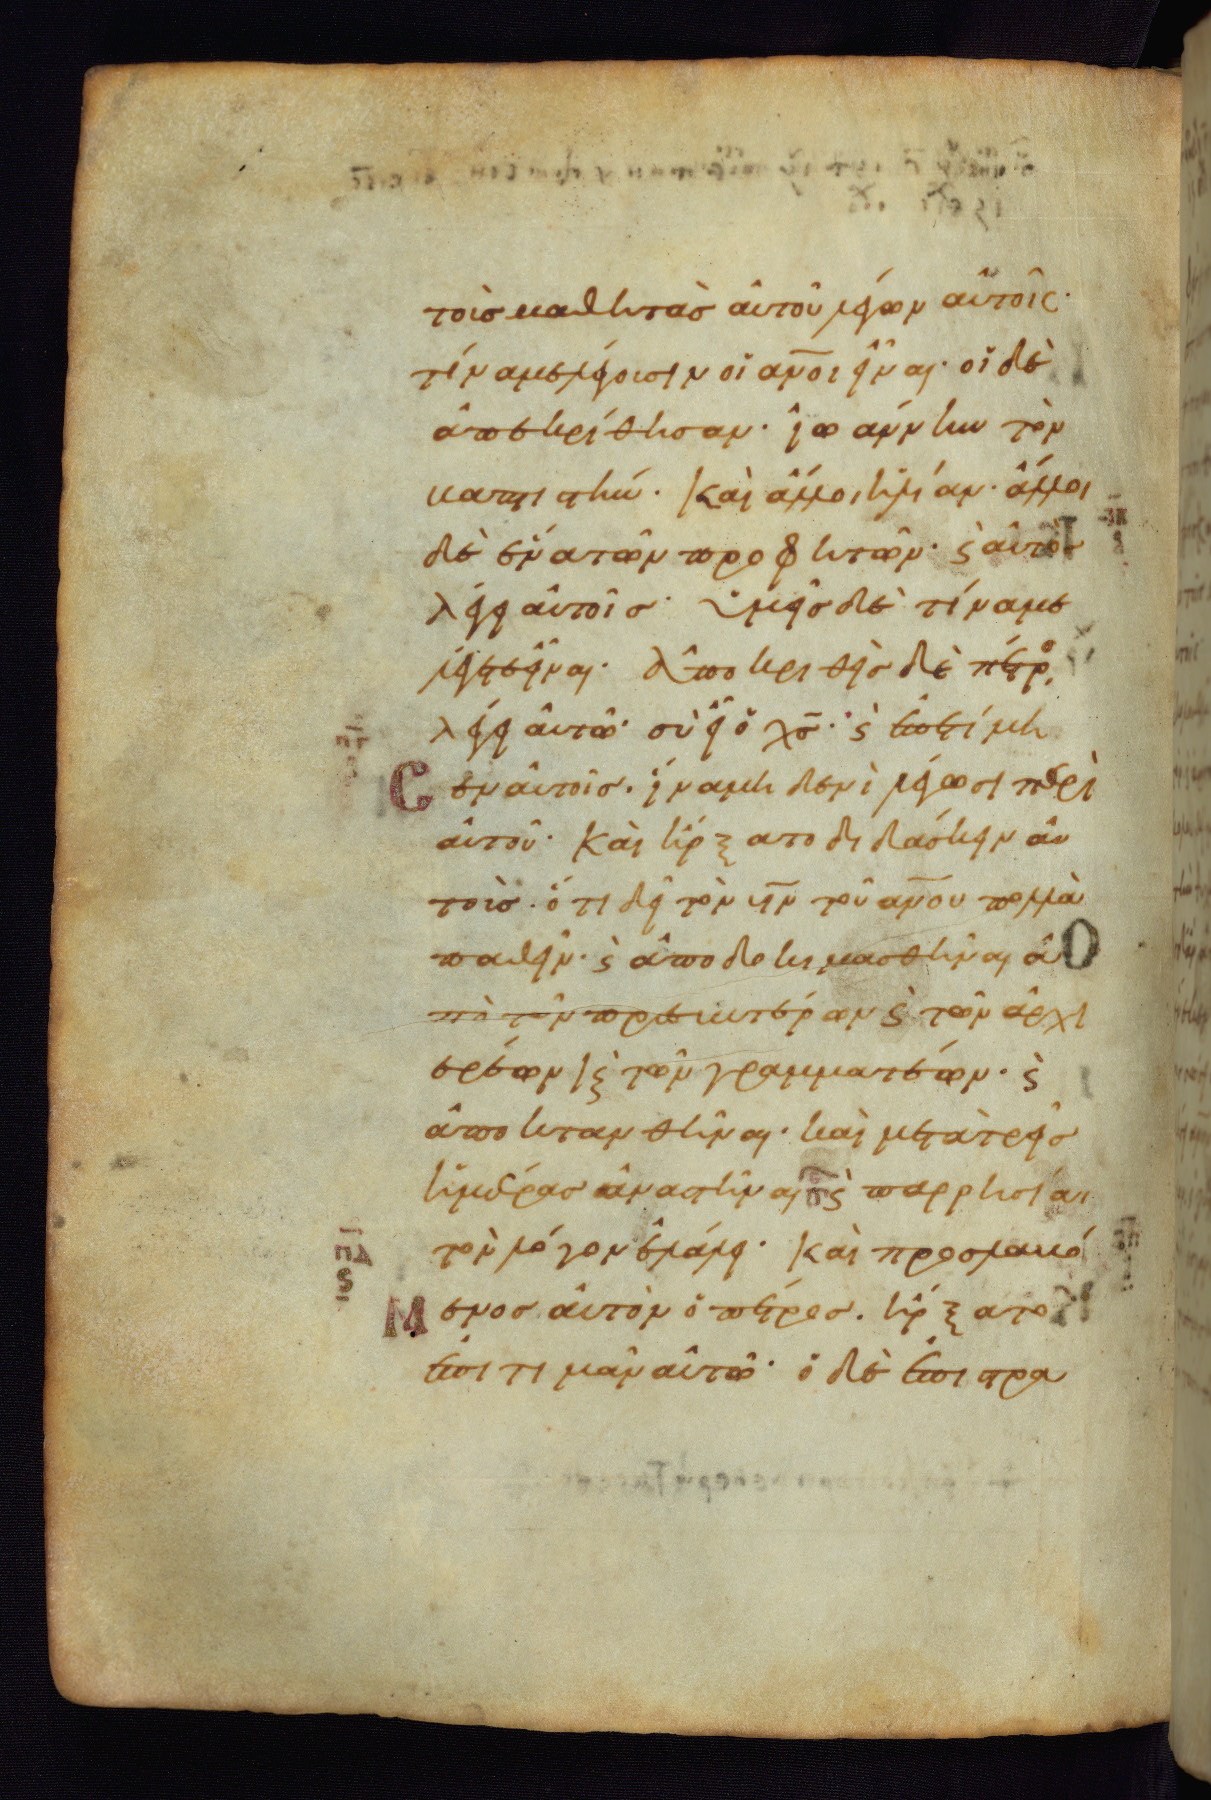 τοὶσ μαθητὰσ αὐτοῦ λέγων αὐτοῖς·
τίνα με λέγουσιν οἱ ἄνοι εἶναι· οἱ δὲ
ἀπεκρίθησαν· ἰωάννην τὸν
βαπτιστήν· Καὶ ἄλλοι ἠλίαν· ἄλλοι
δὲ ἕνα τῶν προφητῶν· ϗ αὐτὸσ
λέγει αὐτοῖσ· ὑμεῖσ δὲ τίνα με
λέγετε εἶναι· Ἀποκριθεὶσ δὲ πέτροσ
λέγει αὐτῶ· σὺ εἶ ὁ χσ̄· ϗ ἐπετίμη
Cεν αὐτοῖσ· ἵνα μηδενὶ λέγωσι περὶ
αὐτοῦ· Καὶ ἤρξατο διδάσκειν αὐ
τοὶσ· ὅτι δεῖ τὸν υἱν̄ τοῦ ἀνου πολλὰ
παθεῖν· ϗ ἀποδοκιμασθῆναι ἀ
πὸ τῶν πρεσβυτέρων ϗ τῶν ἀρχι
ερέων ϗ τῶν γραμματέων· ϗ
ἀποκτανθῆναι· καὶ μετὰ τρεῖσ
ἡμέρασ ἀναστῆναι ϗ παρρησίαι
τὸν λόγον ἐλάλει· Καὶ προσλαβό
Μενοσ αὐτὸν ὁ πέτροσ· ἤρξατο
ἐπιτιμᾶν αὐτῶ· ὁ δὲ ἐπιστρα